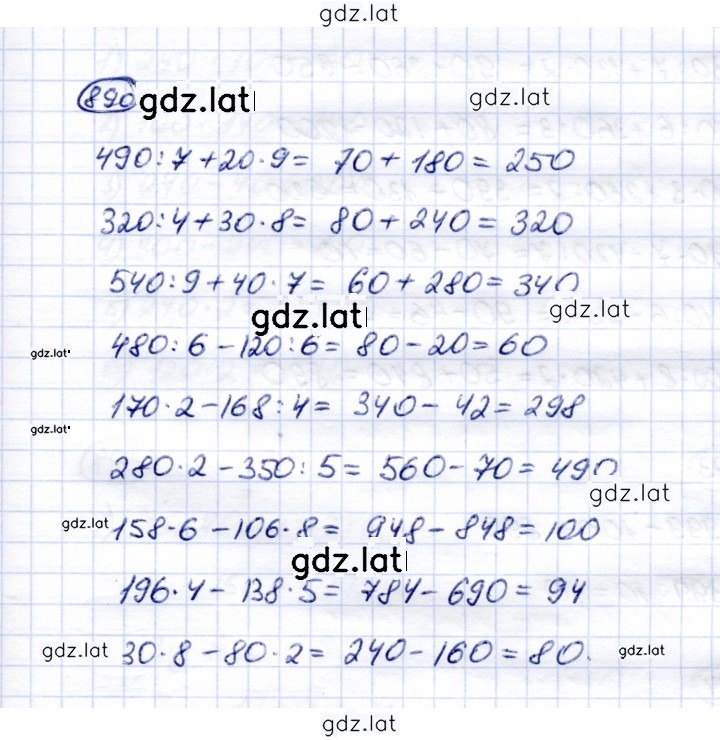 gdz.lat
890 gdz.lat gdz.lat
490:7+20·9= 70+180=250
320:4+30·8= 80+240=320
540:9+40·7= 60+280=340
gdz.lat gdz.lat
gdz.lat 480:6-120:6=80-20=60
170·2-168:4= 340-42=298
gdz.lat
280·2-350:5=560-70=490
gdz.lat
gdz.lat 158·6-106·8= 948-848=100
gdz.lat
196·4-138·5=784-690=94
gdz.lat 30·8-80·2= 240-160=80. gdz.lat
gdz.lat